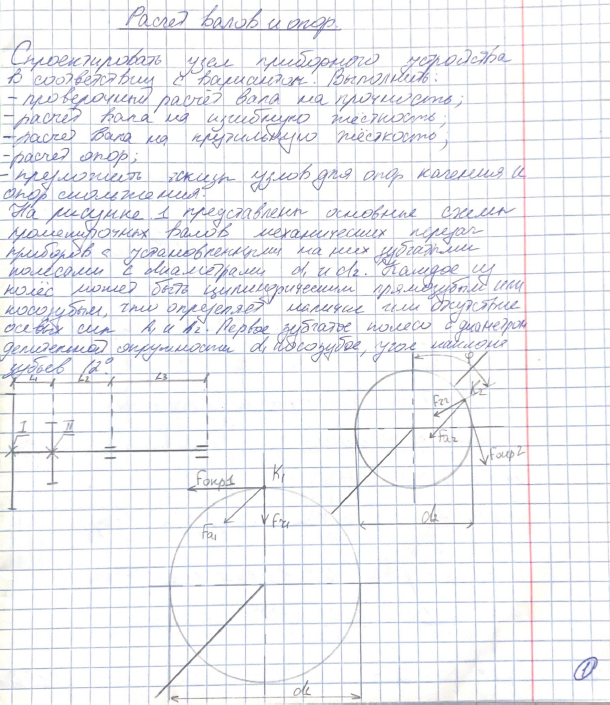 Расчёт валов и опор.
Спроектировать узел приборного устройства
в соответствии с вариантом. Выполнить:
- проверочный расчёт вала на прочность;
- расчёт вала на изгибную жёсткость;
- расчёт вала на крутильную жёсткость;
- расчёт опор;
- предложить эскизы узлов для опор качения и
опор скольжения.
На рисунке 1 представлены основные схемы
промежуточных валов механических передач
приборов с установленными на них зубчатыми
колёсами с диаметрами d1 и d2. Каждое из
колёс может быть цилиндрическим прямозубым или
косозубым, что определяет наличие или отсутствие
осевых сил и . Первое зубчатое колесо с диаметром
делительной окружности d1 косозубое, угол наклона
зубьев 12°
L1 L2 L3
I II
φ
K2
Fr2
Fa2
Fокр2
d2
K1
Fокр1
Fa1
Fr1
d1
1